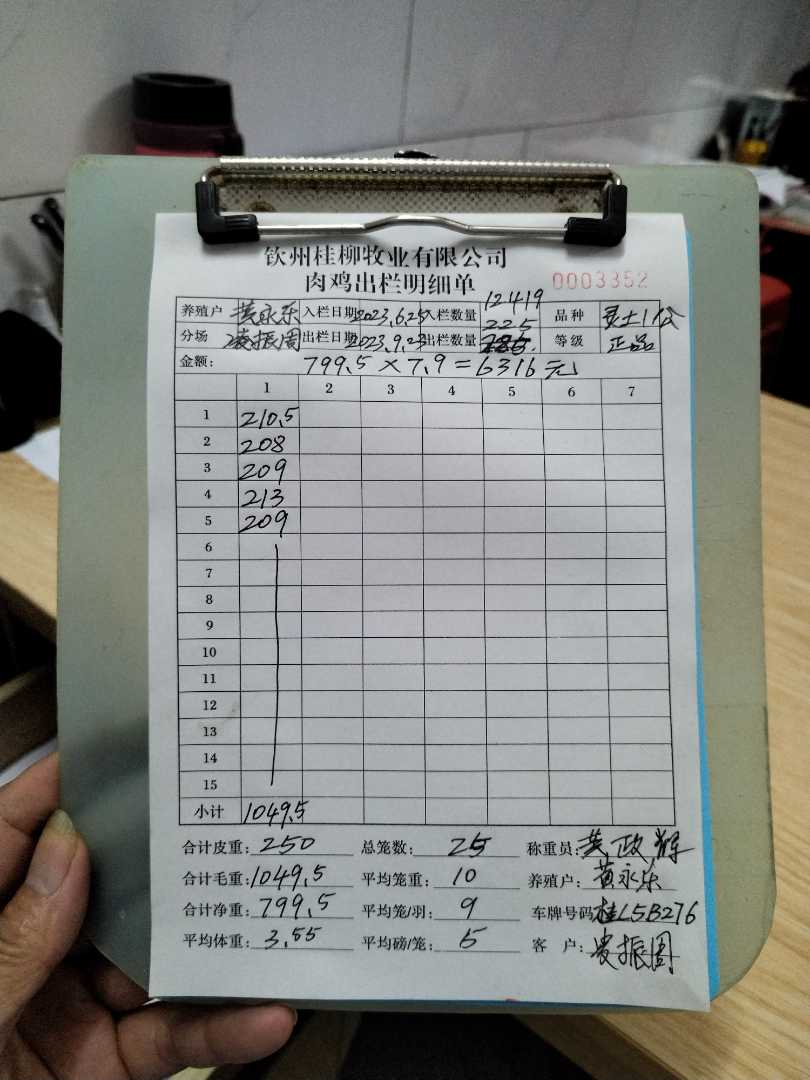 钦州桂柳牧业有限公司
肉鸡出栏明细单 0003352
养殖户 黄永乐 入栏日期 2023.6.25 入栏数量 12419 品种 灵土1公
分场 凌振周 出栏日期 2023.9.23 出栏数量 225 等级 正品
金额: 799.5×7.9=6316元
1 2 3 4 5 6 7
1 210.5
2 208
3 209
4 213
5 209
6
7
8
9
10
11
12
13
14
15
小计 1049.5
合计皮重: 250 总笼数: 25 称重员: 黄政辉
合计毛重: 1049.5 平均笼重: 10 养殖户: 黄永乐
合计净重: 799.5 平均笼/羽: 9 车牌号码 桂L5B276
平均体重: 3.55 平均磅/笼: 5 客户: 凌振周